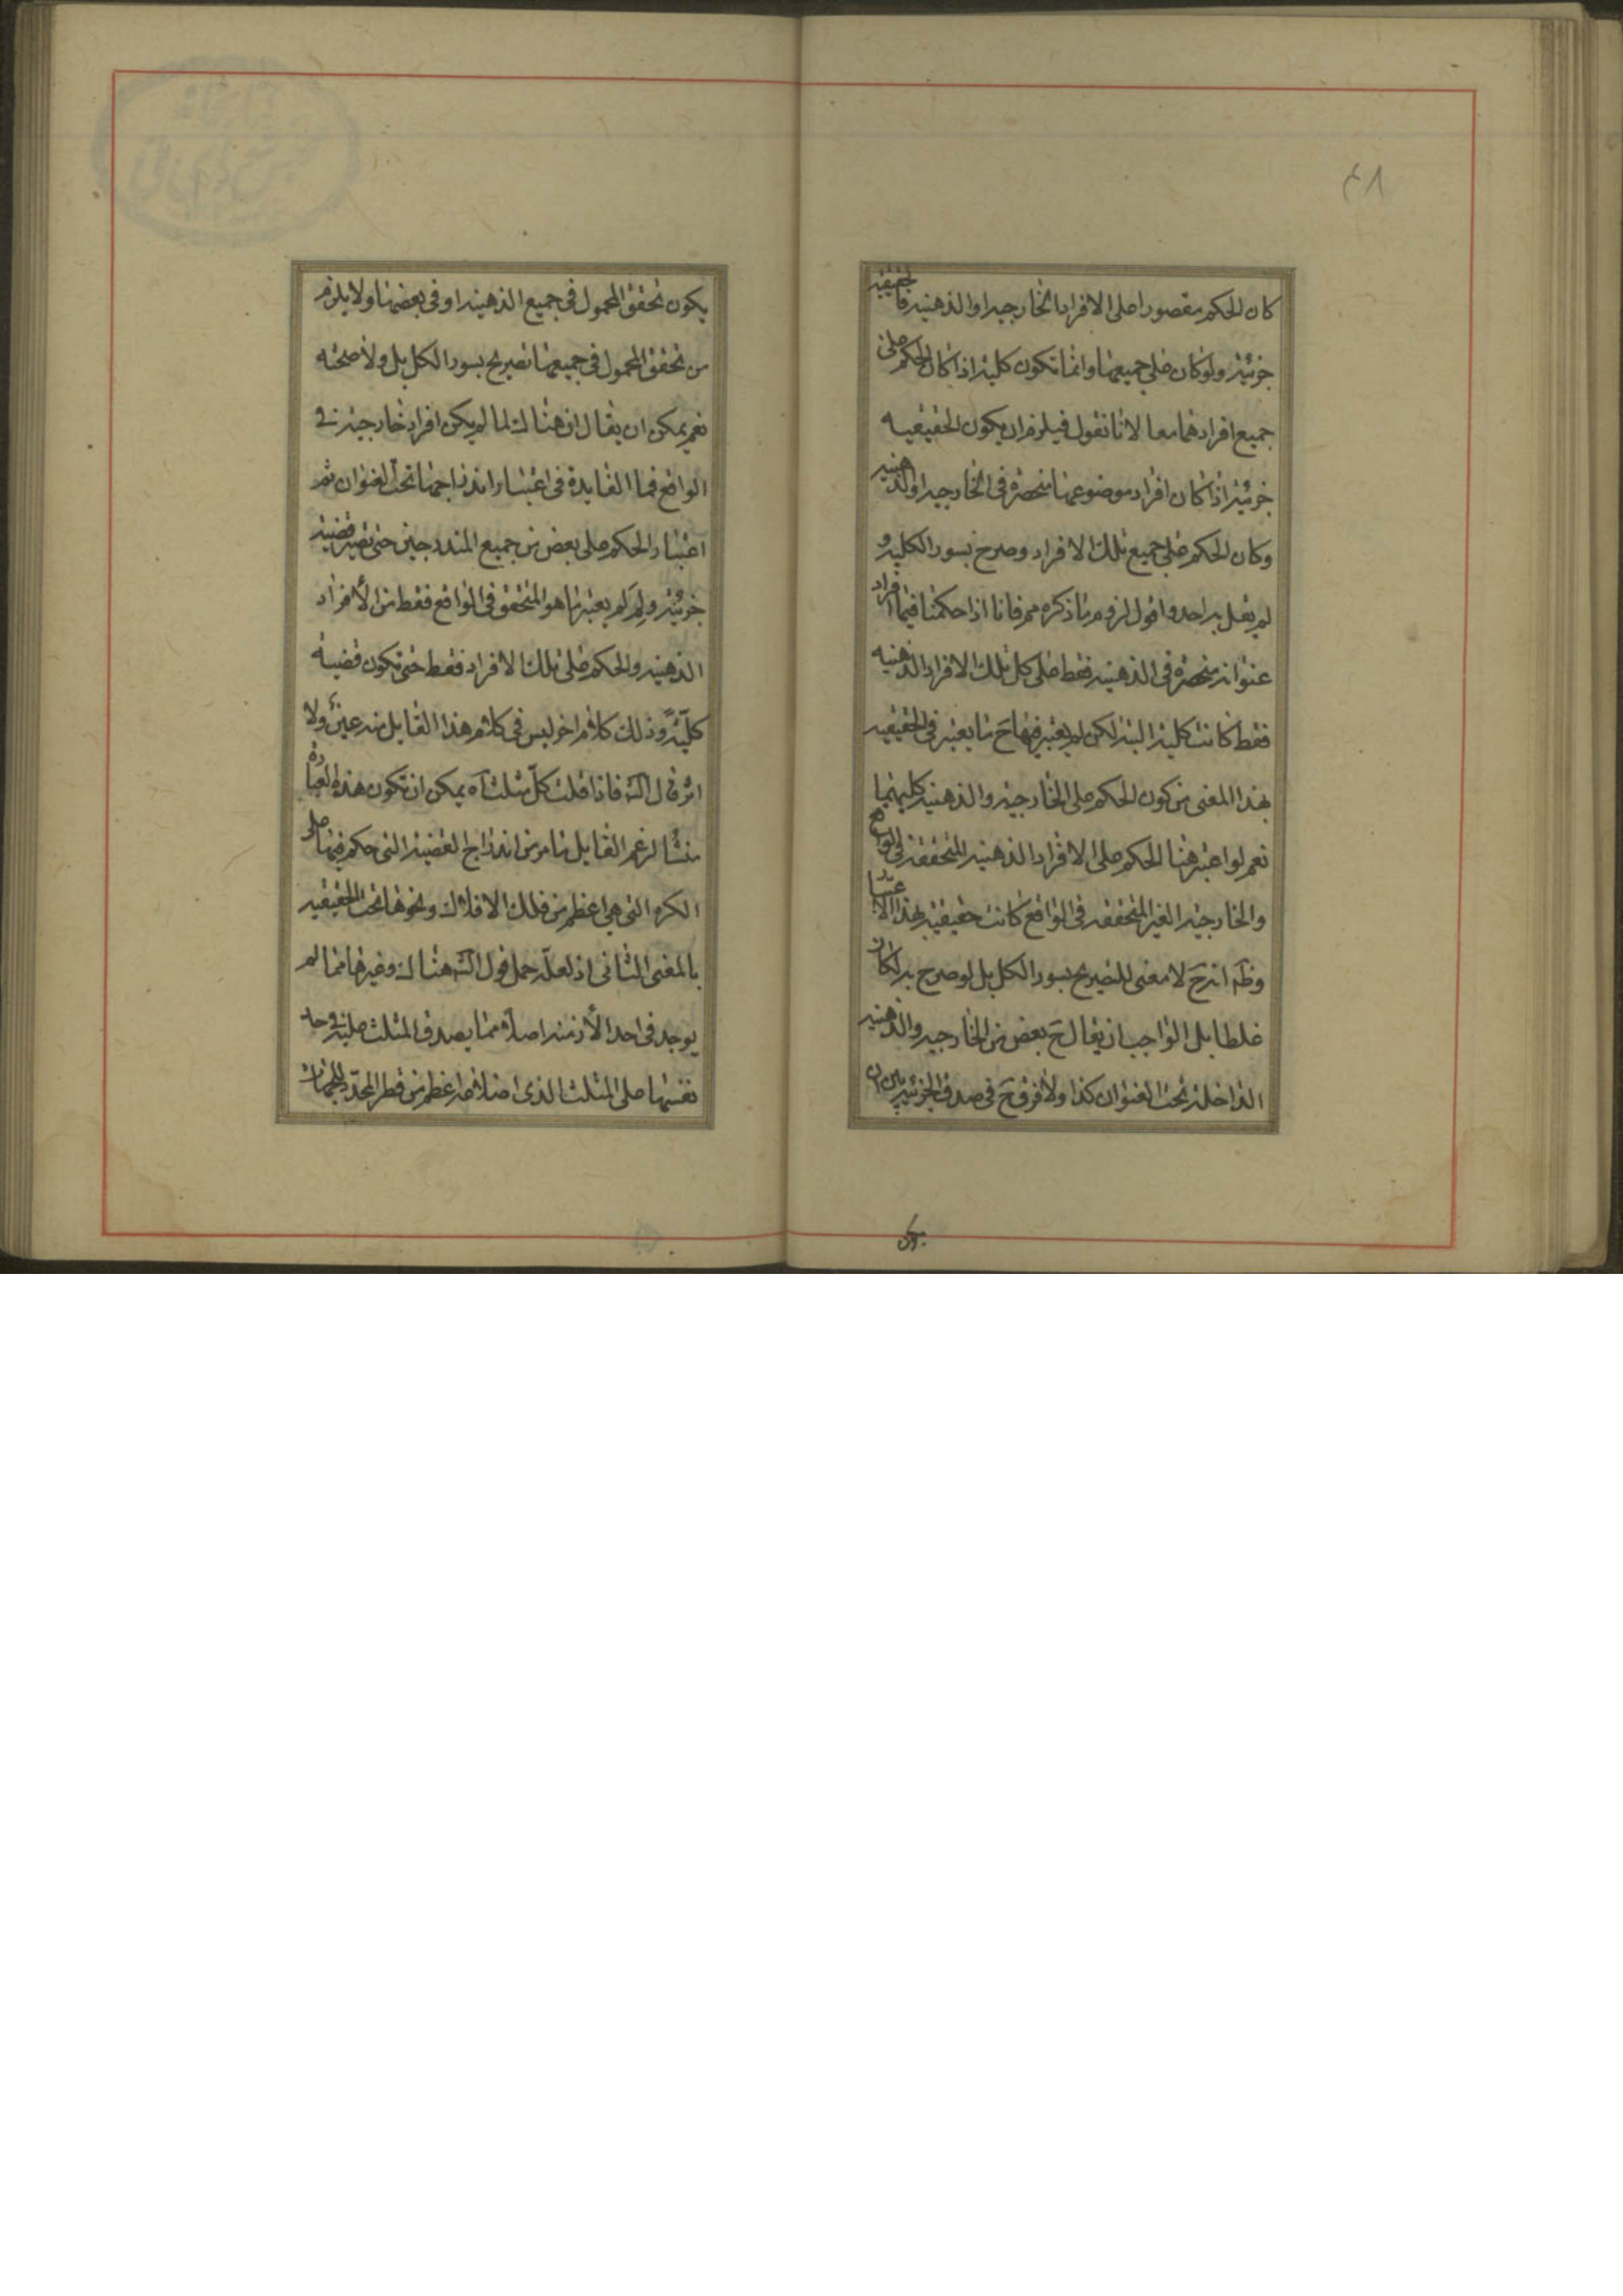 ٤٨
كان الحكم مقصورا على الافراد الخارجيه او الذهنيه فالحقيقيه
جزئيه ولو كان على جميعها وانما تكون كليه اذا كان الحكم على
جميع افرادهما معا لانا نقول فيلزم ان يكون الحقيقيه
جزئيه اذا كان افراد موضوعها منحصرة في الخارجيه او الذهنيه
وكان الحكم على جميع تلك الافراد وصرح بسور الكليه و
لم يقل به احد واقول لزوم ما ذكره مم فانا اذا حكمنا فيما افراد
عنوانه منحصرة في الذهنيه فقط على كل تلك الافراد الذهنيه
فقط كانت كليه البته لكن لم يعتبر فيها ح ما يعتبر في الحقيقيه
بهذا المعنى من كون الحكم على الخارجيه والذهنيه كليهما
نعم لو اعتبر هنا الحكم على الافراد الذهنيه المتحققه في الواقع
والخارجيه الغير المتحققه في الواقع كانت حقيقيه بهذا الاعتبار
وظه انه ح لا معنى للتصريح بسور الكل بل لو صرح به لكان
غلطا بل الواجب ان يقال ح بعض من الخارجيه والذهنيه
الداخله تحت العنوان كذا ولا فرق ح في صدق الجزئيه بين ان
يكون
يكون تحقق المحمول في جميع الذهنيه او في بعضها ولا يلزم
من تحقق المحمول في جميعها تصريح بسور الكل بل ولا صحته
نعم يمكن ان يقال ان هناك لما لم يكن افراد خارجيه في
الواقع فما الفايدة في اعتبار اندراجها تحت العنوان ثم
اعتبار الحكم على بعض من جميع المندرجين حتى تصير قضيه
جزئيه ولم لم يعتبر ما هو المتحقق في الواقع فقط من الأفراد
الذهنيه والحكم على تلك الافراد فقط حتى تكون قضيه
كليّه وذلك كلام اخر ليس في كلام هذا القايل منه عين ولا
اثر قال الشه فاذا قلت كل مثلث آه يمكن ان تكون هذه العبارة
منشأ لزعم القايل ما مر من اندراج القضيه التي حكم فيها على
الكره التي هي اعظم من فلك الافلاك ونحوها تحت الحقيقيه
بالمعنى الثاني اذ لعله حمل قول الشه هناك وغيرها مما لم
يوجد في احد الأزمنه اصلا مما يصدق المثلث عليه في حد
نفسها على المثلث الذي اضلاعه اعظم من قطر المحدّد للجهات